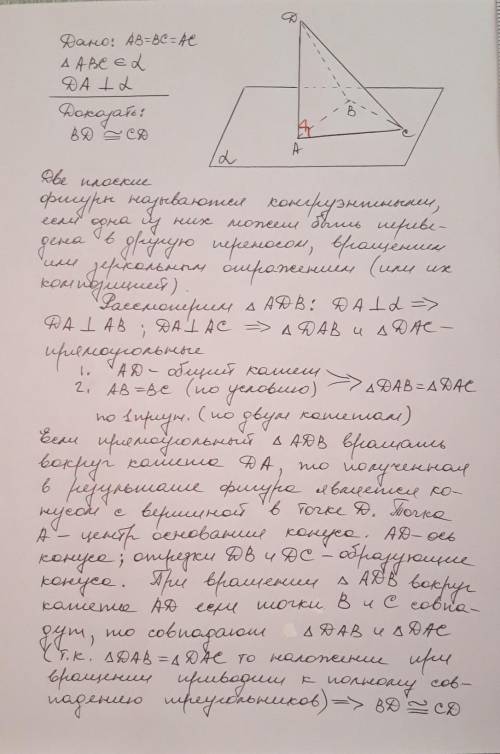 Дано: AB=BC=AC
△ABC ∈ α
DA ⊥ α
Доказать:
BD ≅ CD
D
B
A
C
α
Две плоские
фигуры называются конгруэнтными,
если одна из них может быть переве-
дена в другую переносом, вращением
или зеркальным отражением (или их
композицией).
Рассмотрим △ADB: DA⊥α =>
DA⊥AB; DA⊥AC => △DAB и △DAC -
прямоугольные
1. AD - общий катет
2. AB=BC (по условию) => △DAB=△DAC
по 1 призн. (по двум катетам)
Если прямоугольный △ADB вращать
вокруг катета DA, то полученная
в результате фигура является ко-
нусом с вершиной в точке D. Точка
A - центр основания конуса. AD-ось
конуса; отрезки DB и DC - образующие
конуса. При вращении △ADB вокруг
катета AD если точки B и C совпа-
дут, то совпадают △DAB и △DAC
(т.к. △DAB=△DAC то наложении при
вращении приводит к полному сов-
падению треугольников) => BD ≅ CD